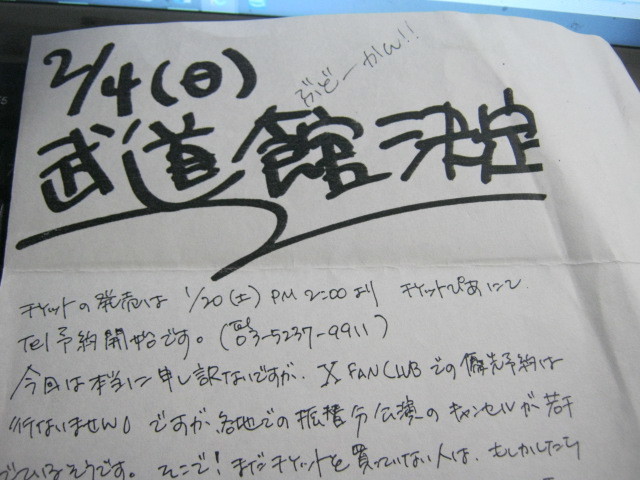 2/4(日)
ぶどーかん!!
武道館決定
チケットの発売は 1/20(土) PM 2:00より チケットぴあにて
Tel予約開始です。(☎03-5237-9911)
今回は本当に申し訳ないですが、X FAN CLUBでの優先予約は
行ないません。ですが、各地での振替分公演のキャンセルが若干
でているそうです。そこで!まだチケットを買っていない人は、もしかしたら